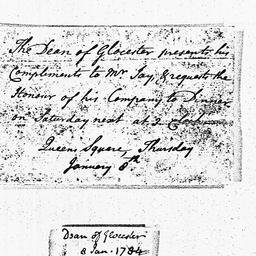 The Dean of Glocester presents his
Compliments to Mr Jay, & requests the
Honour of his Company to Dinner
on Saturday next at 3 Clock
Queens Square, Thursday
January 8th
Dean of Glocester
8 Jan. 1784